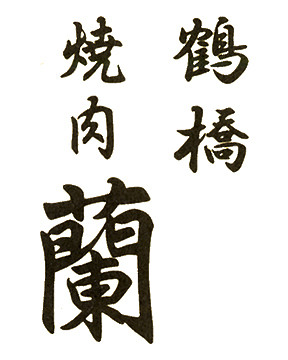 鶴橋
焼肉
蘭